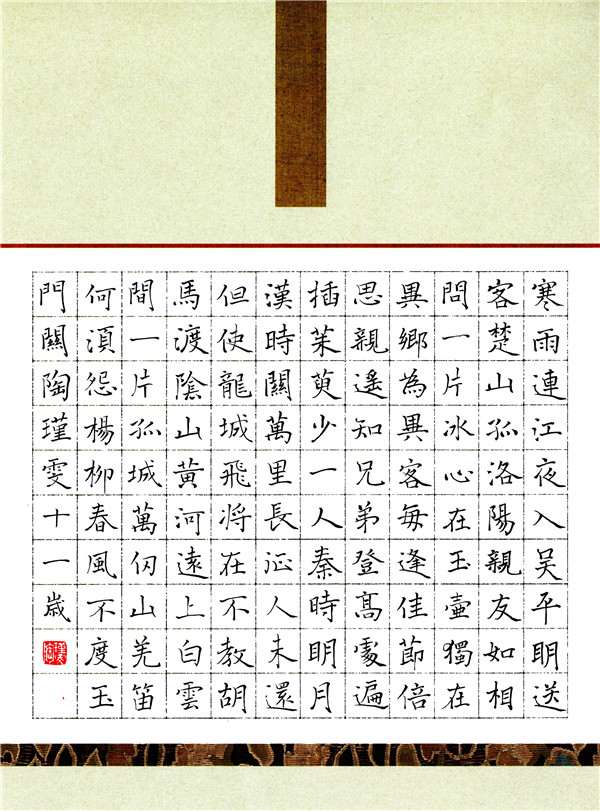 寒雨連江夜入吴平明送
客楚山孤洛陽親友如相
問一片冰心在玉壺獨在
異鄉為異客每逢佳節倍
思親遥知兄弟登高處遍
插茱萸少一人秦時明月
漢時關萬里長征人未還
但使龍城飛将在不教胡
馬渡陰山黄河遠上白雲
間一片孤城萬仞山羌笛
何須怨楊柳春風不度玉
門關陶瑾雯十一歲